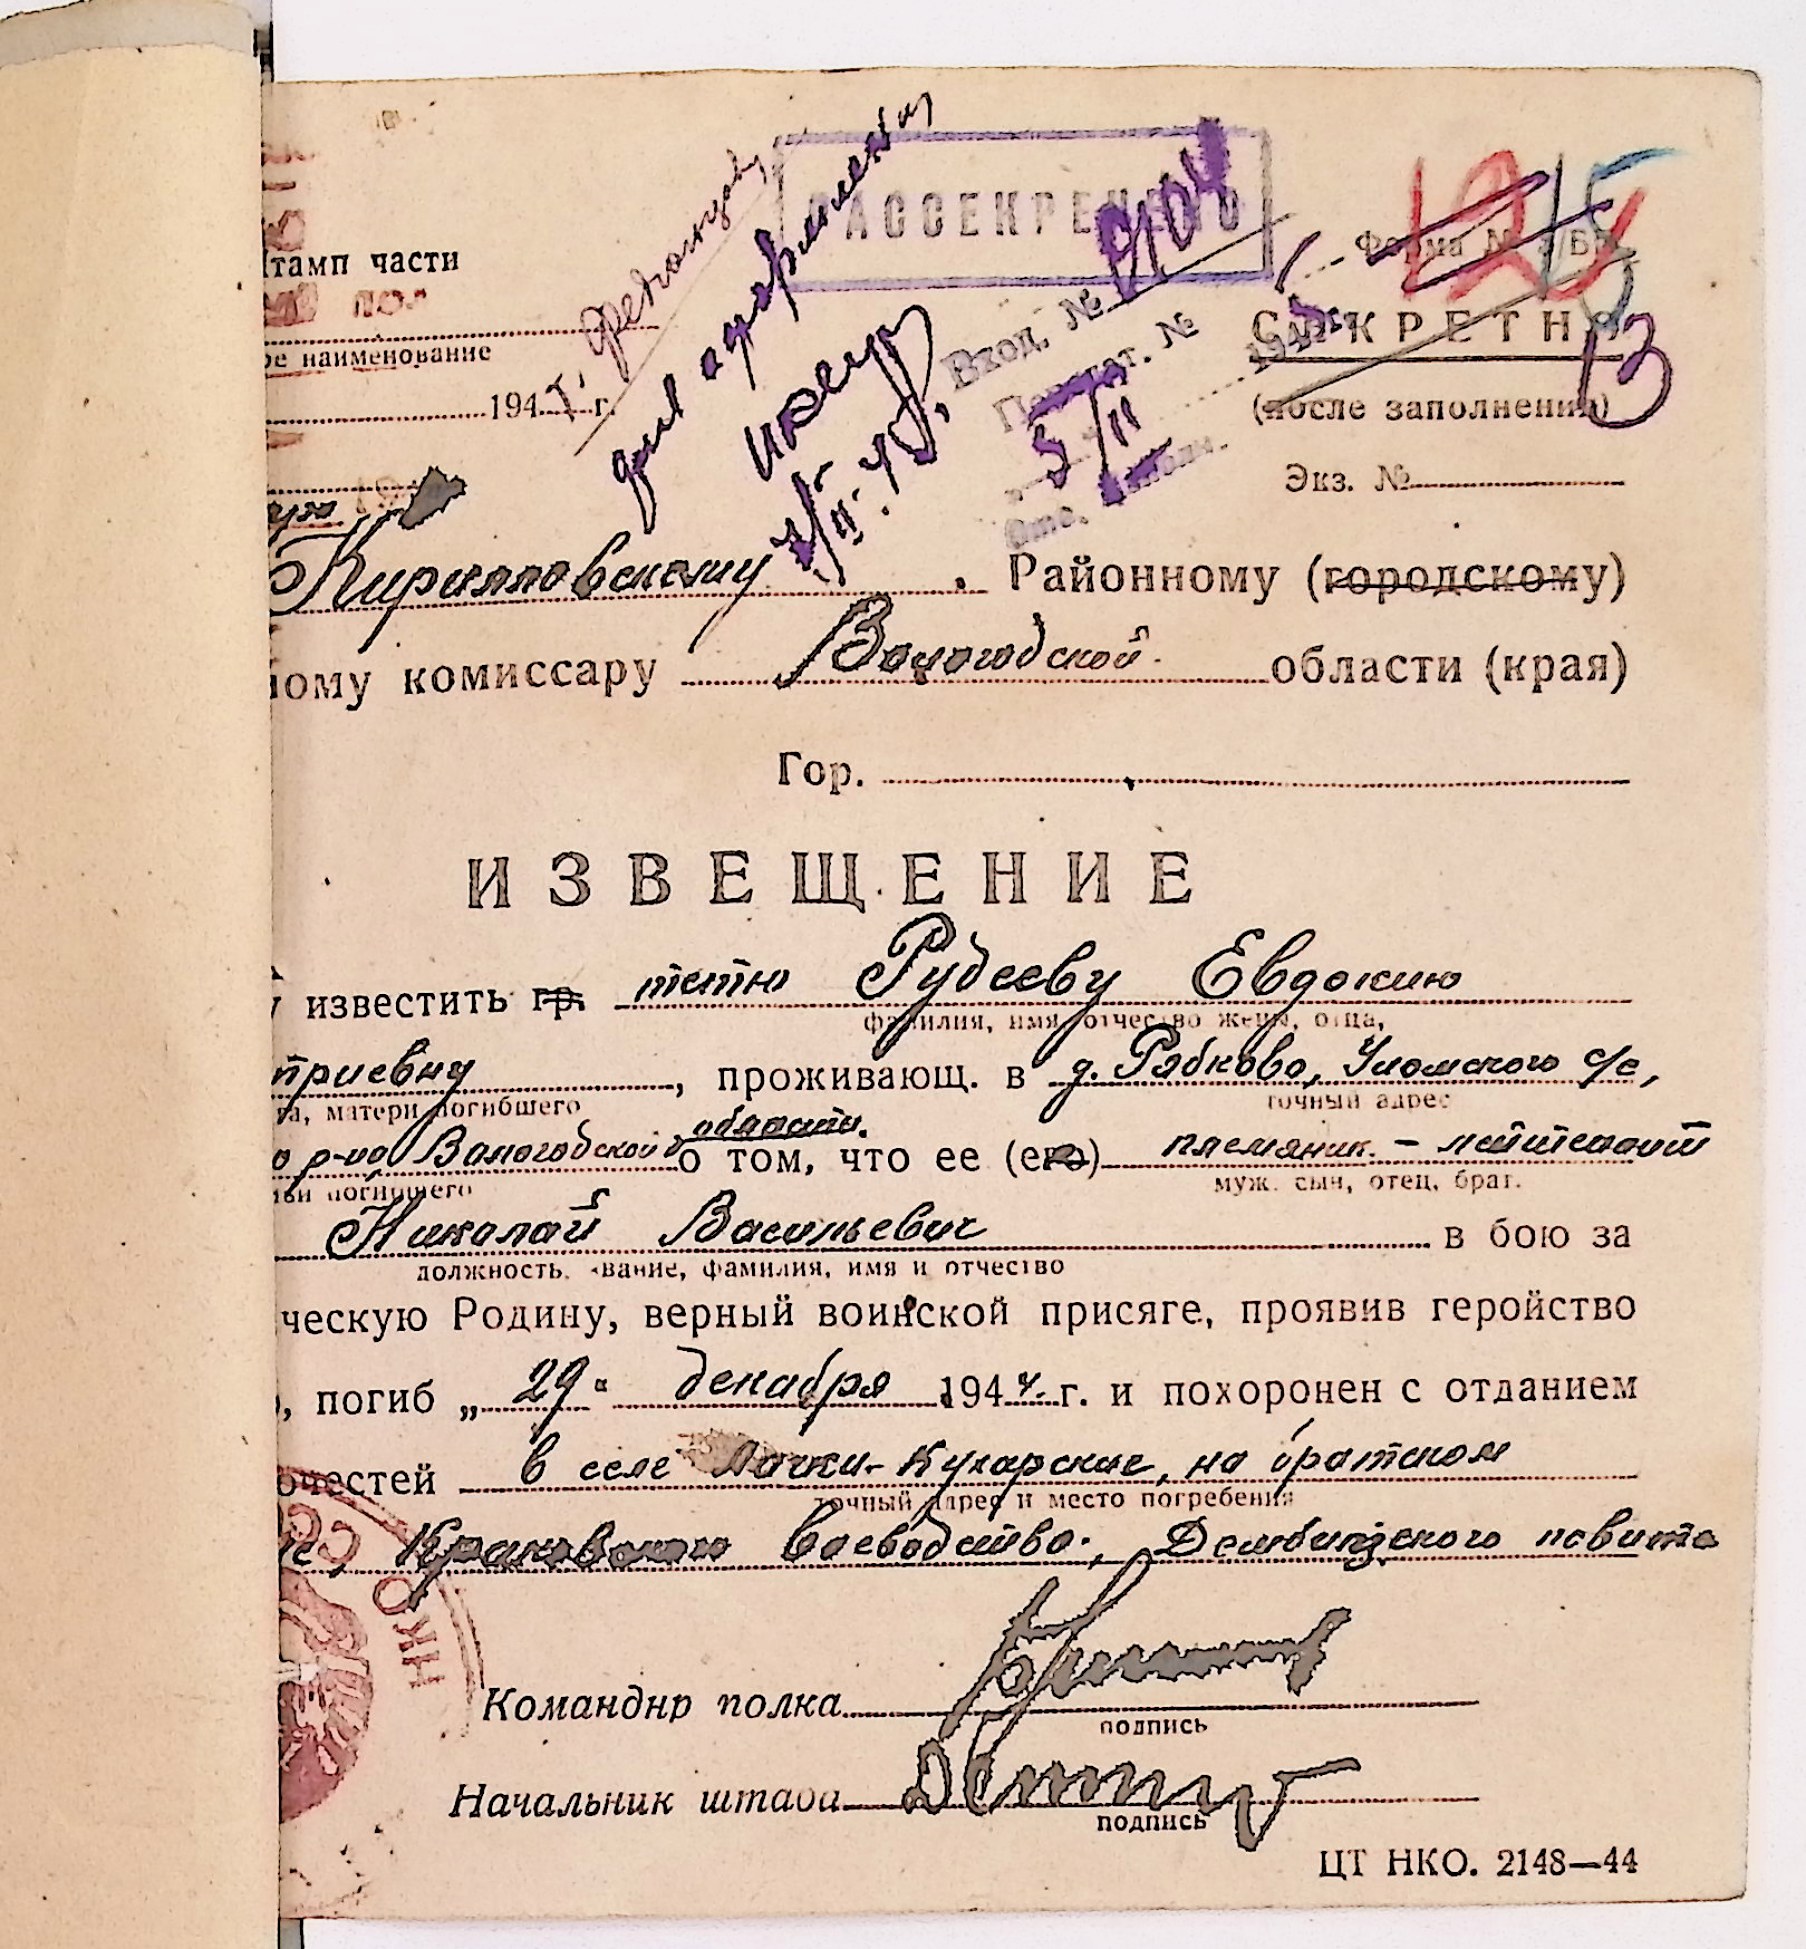 РАССЕКРЕЧЕНО
125
Форма №
9104
Вход. №
тамп части
СЕКРЕТНО
13
ое наименование
1945 г.
5/II
(после заполнения)
Экз. №
Кирилловскому Районному (городскому)
ному комиссару Вологодской области (края)
Гор.
ИЗВЕЩЕНИЕ
известить гр. тетю Рудееву Евдокию
фамилия, имя отчество жены, отца,
триевну, проживающ. в д. Рябково, Уломского с/с,
та, матери погибшего точный адрес
области.
о р-на Вологодской о том, что ее (его) племяник - лейтенант
погибшего муж, сын, отец, брат.
Николай Васильевич в бою за
должность, звание, фамилия, имя и отчество
ческую Родину, верный воинской присяге, проявив геройство
, погиб „29" декабря 1944 г. и похоронен с отданием
очестей в селе Лочки-Кухарские, на братском
точный адрес и место погребения
Краковского воеводство, Дембицкого повита
НКО
Командир полка
подпись
Начальник штаба
подпись
ЦТ НКО. 2148—44